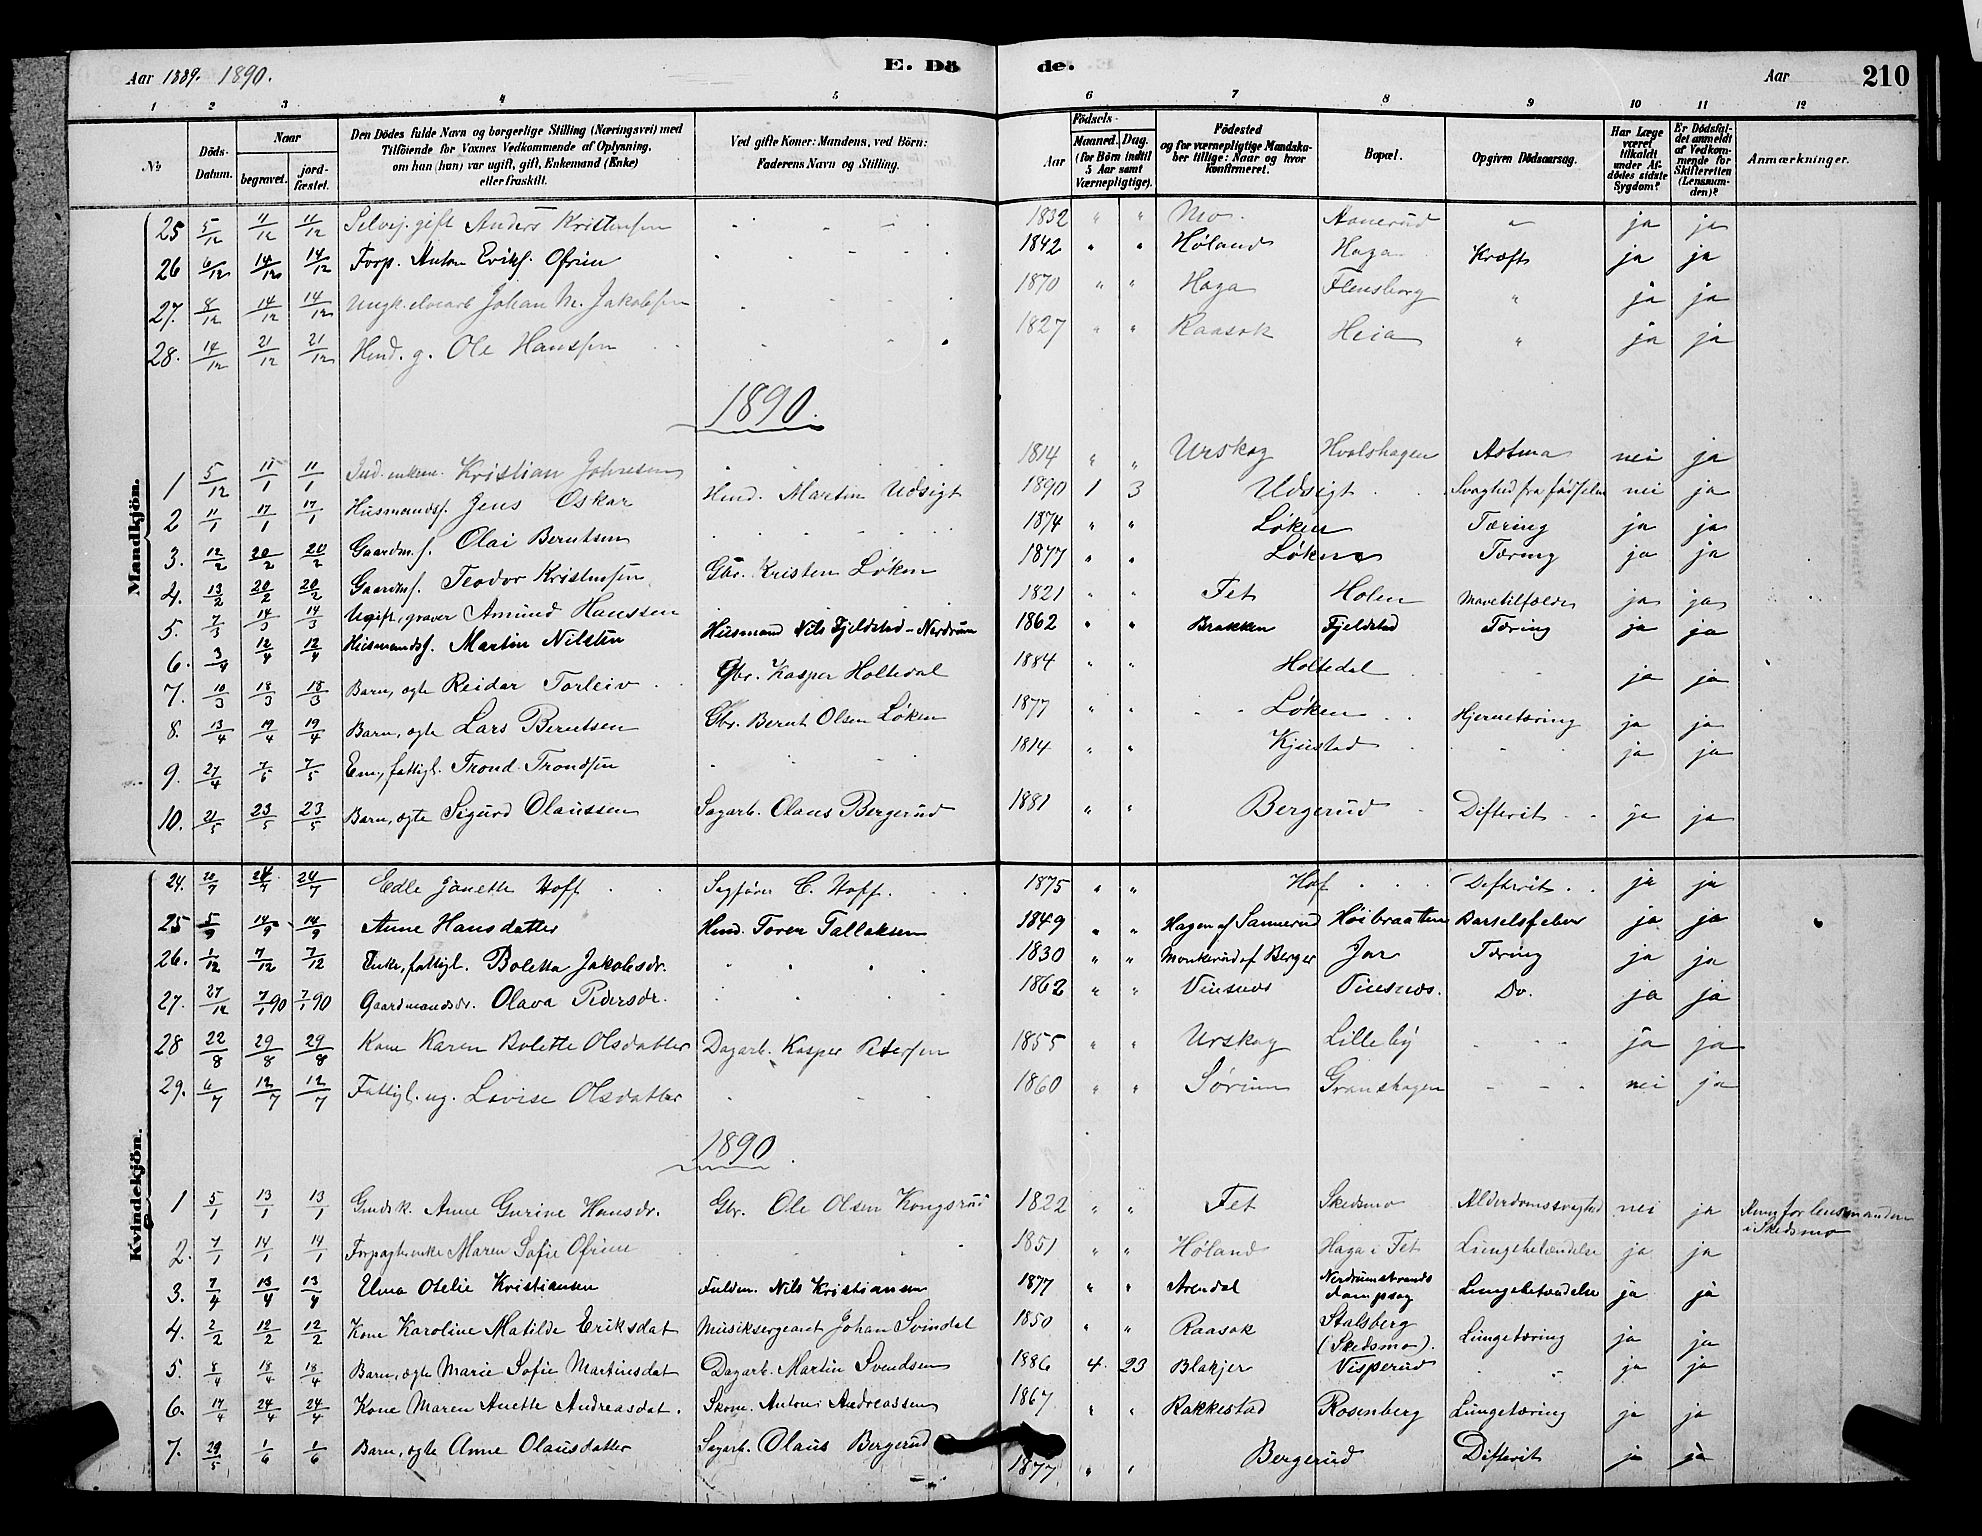 Aar 1889. 1890. E. Dö de. Aar 210
1 2 3 4 5 6 7 8 9 10 11 12
No Döds-Datum. Naar begravet. jord-fæstet. Den Dödes fulde Navn og borgerlige Stilling (Næringsvei) med Tilföiende for Voxnes Vedkommende af Oplysning, om han (hun) var ugift, gift, Enkemand (Enke) eller fraskilt. Ved gifte Koner: Mandens, ved Börn: Faderens Navn og Stilling. Födsels- Aar Maaned. Dag. (for Börn indtil 5 Aar samt Værnepligtige). Födested og for værnepligtige Mandskaber tillige: Naar og hvor konfirmeret. Bopæl. Opgiven Dödsaarsag. Har Læge været tilkaldt under Afdödes sidste Sygdom? Er Dödsfaldet anmeldt af Vedkommende for Skifteretten (Lensmanden)? Anmærkninger.
Mandkjön.
25 5/12 11/12 11/12 Selvej. gift Anders Kristensen 1832 " " Mo. Aanerud " ja ja
26 6/12 14/12 14/12 Forp. Anton Eriks. Ofrim 1842 " " Høland Haga Kræft ja ja
27. 8/12 14/12 14/12 Ungk. Johan M. Jakobsen 1870 " " Haga Flensborg " ja ja
28. 14/12 21/12 21/12 Hmd. g. Ole Hanssen 1827 " " Raasok Heia " ja ja
1890.
1 5/12 11/1 11/1 Ind. enkem. Kristian Johnesen 1814 " " Urskog Hvalshagen Astma nei ja
2 11/1 17/1 17/1 Husmands. Jens Oskar Hmd. Martin Udsigt 1890 1 3 Udsigt Svaghed fra fødselen nei ja
3. 12/2 20/2 20/2 Gaardm s. Olai Berntsen 1874 " " Løken Tæring ja ja
4. 13/2 20/2 20/2 Gaardm s. Teodor Kristensen Gbr. Kristen Løken 1877 " " Løken Tæring ja ja
5. 7/3 14/3 14/3 Ugift, graver Amund Hanssen 1821 " " Fet Holen Mavetilfælde ja ja
6. 3/4 12/4 12/4 Husmands. Martin Nilsten Husmand Nils Fjeldstad - Nerdrum 1862 " " Brakken Fjeldstad Tæring ja ja
7. 10/3 18/3 18/3 Barn, ægte Reidar Torleiv Gbr. Kasper Holtedal 1884 " " Holtedal ja ja
8. 13/4 19/4 19/4 Barn, ægte Lars Berntsen Gbr. Bernt Olsen Løken 1877 " " Løken Hjernetæring ja ja
9. 27/4 7/6 7/5 Em, fattigl. Trond Trondsen 1814 " " Kjustad ja ja
10. 21/5 23/5 23/5 Barn, ægte Sigurd Olaussen Sagarb. Olaus Bergerud 1881 " " Bergerud Difterit ja ja
Kvindekjön.
24. 20/7 24/7 24/7 Edle Janette Hoff Sagfører C. Hoff. 1875 " " Hof Difterit ja ja
25 5/9 14/9 14/9 Anne Hansdatter Hmd. Torer Tallaksen 1849 " " Hagen af Sannerud Høibraaten Barselsfeber ja ja
26. 1/12 7/12 7/12 Enke, fattigl. Boletta Jakobsdr. 1830 " " Monkerud af Berger Jar Tæring ja ja
27. 27/12 7/1 90 7/1 90 Gaardmandsdr. Olava Pedersdr. 1862 " " Vinsnes Vinsnes. Do. ja ja
28 22/8 29/8 29/8 Kone Karen Bolette Olsdatter Dagarb. Kasper Petersen 1855 " " Urskog Lilleby ja ja
29. 6/7 12/7 12/7 Fattigl. ug. Lovise Olsdatter 1860 " " Sørum Granshagen nei ja
1890
1 5/1 13/1 13/1 Gmdsk. Anne Gurine Hansdr. Gbr. Ole Olsen Kongsrud 1822 " " Fet Skedsmo Alderdomssvaghed nei ja Anm for lensmanden i Skedsmo
2. 7/1 14/1 14/1 Forpagterenke Maren Sofie Ofrim 1851 " " Høland Haga i Fet Lungebetændelse ja ja
3. 7/4 13/4 13/4 Elma Otelie Kristiansen Fuldm. Nils Kristiansen 1877 " " Arendal Nerdrumstrands dampsag Lungebetændelse ja ja
4. 2/2 12/2 12/2 Kone Karoline Matilde Eriksdat Musiksergeant Johan Svindal 1850 " " Raasok Stalsberg (Skedsmo). Lungetæring ja ja
5 8/4 18/4 18/4 Barn, ægte Marie Sofie Martinsdat Dagarb. Martin Svendsen 1886 4. 23 Blakjer Visperud " ja ja
6. 17/4 24/4 24/4 Kone Maren Anette Andreasdat. Skom. Anton Andreassen 1867 " " Rakkestad Rosenberg Lungetæring ja ja
7. 29/5 1/6 1/6 Barn, ægte Anne Olausdatter Sagarb. Olaus Bergerud 1877 " " Bergerud Difterit ja ja